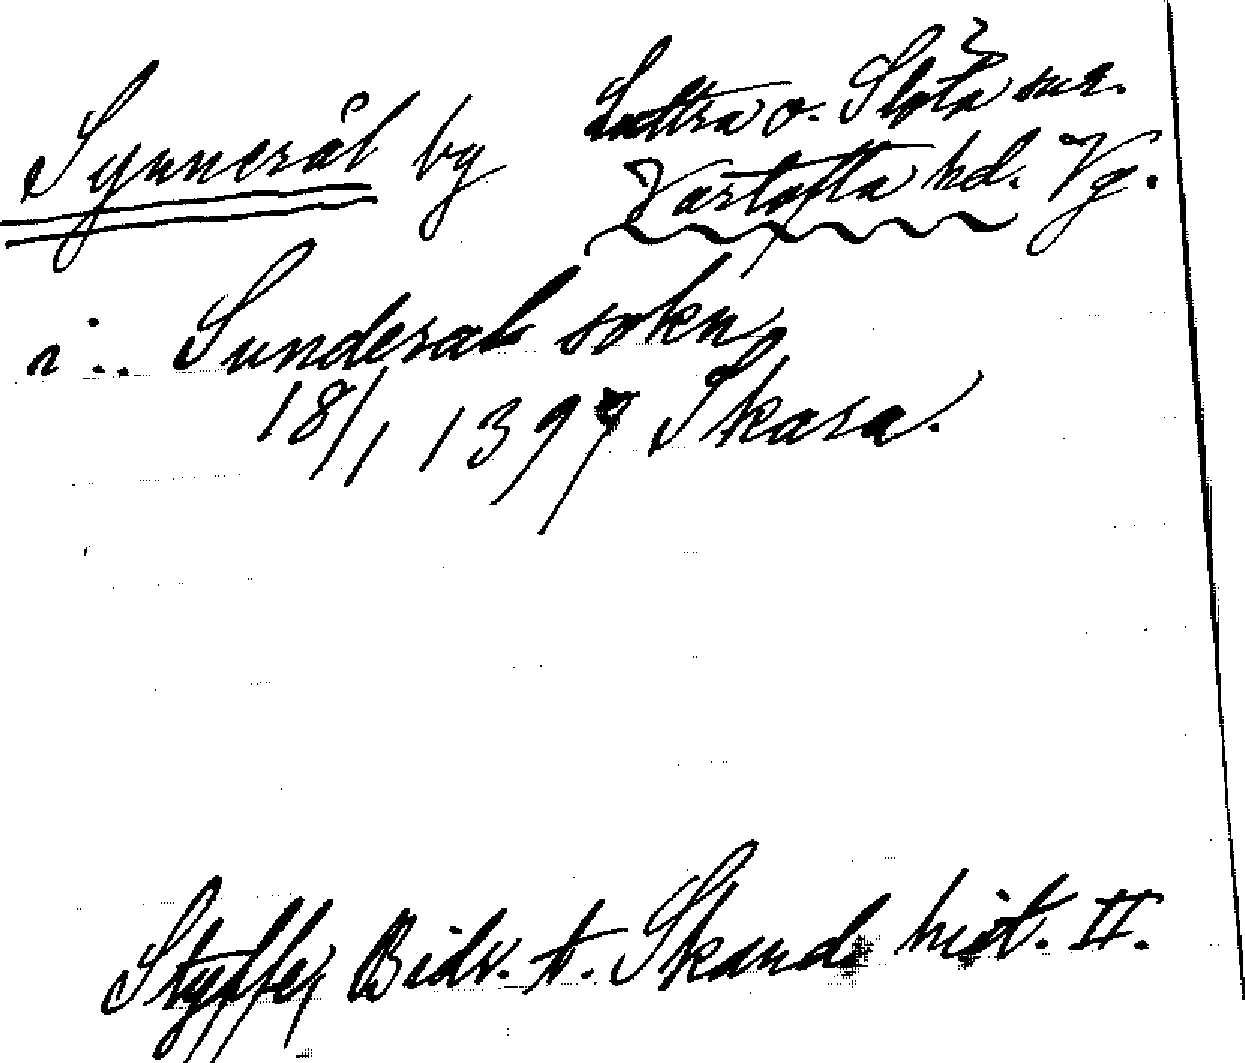 Synnerål by Luttra o. Slöta snr.
Vartofta hd. Vg.
i.. Sunderal sokn,
18/1 1397 Skara.
Styffe, Bidr. t. Skand. hist. II.